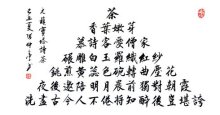 茶
香葉 嫩芽
慕詩客 愛僧家
碾雕白玉 羅織紅紗
銚煎黃蕊色 碗轉曲塵花
夜後邀陪明月 晨前命對朝霞
洗盡古今人不倦 將知醉後豈堪誇
元稹寶塔詩茶